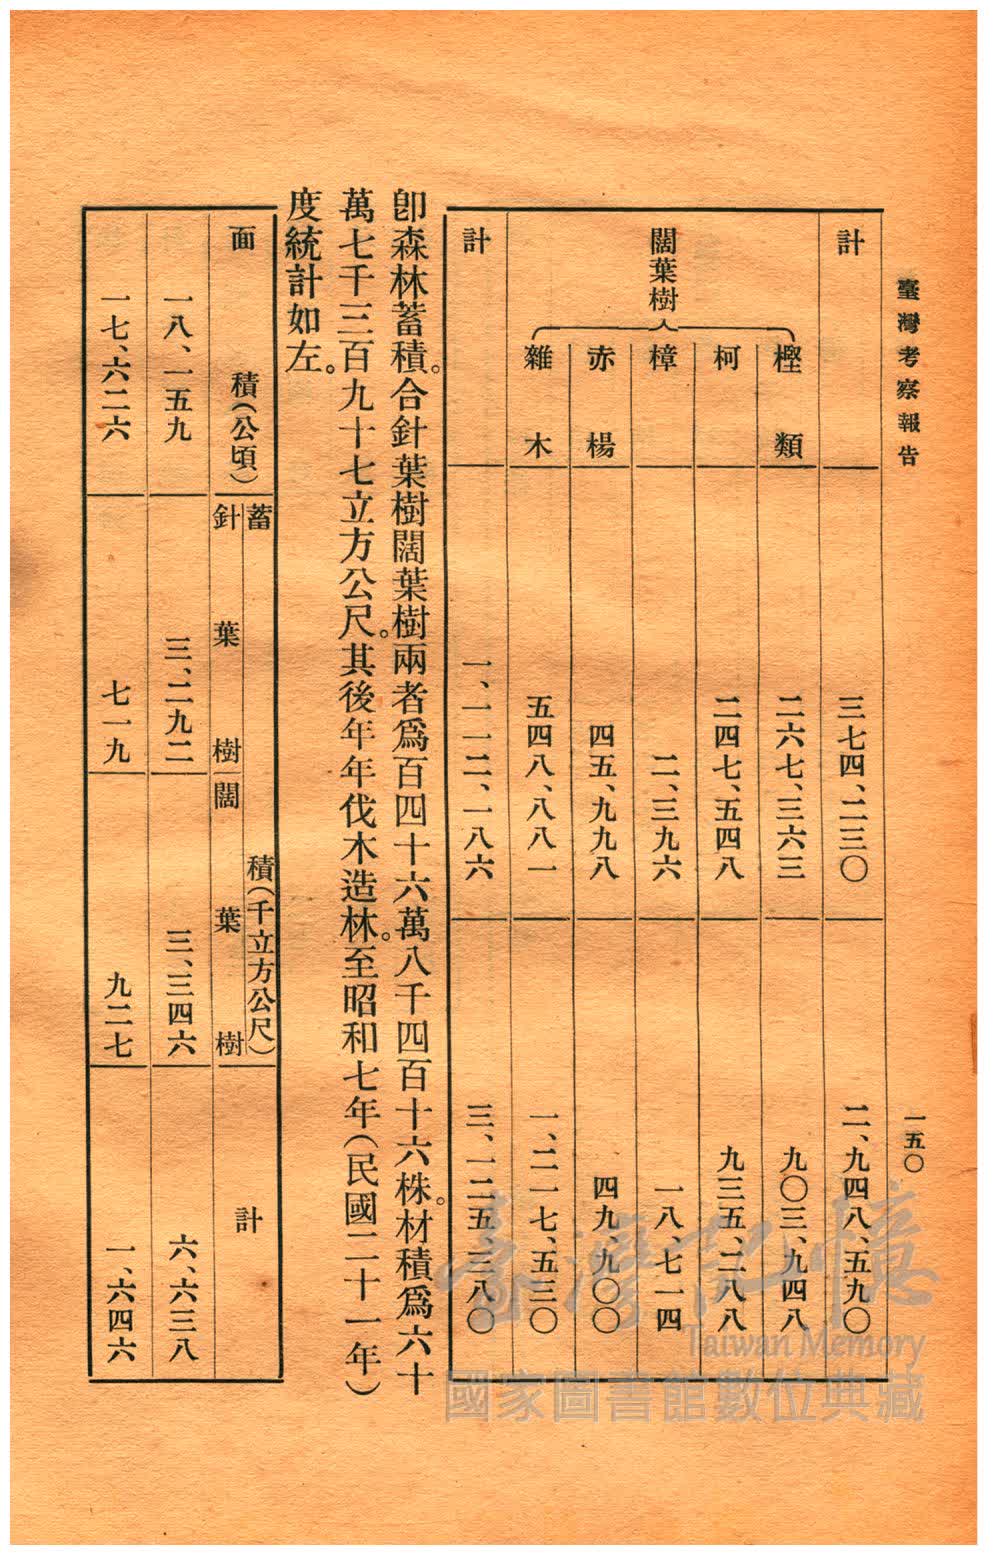 臺灣考察報告
一五〇
計 三七四、二三〇 二、九四八、五九〇
闊葉樹
樫類 二六七、三六三 九〇三、九四八
柯 二四七、五四八 九三五、二八八
樟 二、三九六 一八、七一四
赤楊 四五、九九八 四九、九〇〇
雜木 五四八、八八一 一、二一七、五三〇
計 一、一一二、一八六 三、一二五、三八〇
卽森林蓄積。合針葉樹闊葉樹兩者爲百四十六萬八千四百十六株。材積爲六十
萬七千三百九十七立方公尺。其後年年伐木造林。至昭和七年（民國二十一年）
度統計如左。
面積（公頃） 蓄積（千立方公尺）
針葉樹 闊葉樹 計
一八、一五九 三、二九二 三、三四六 六、六三八
一七、六二六 七一九 九二七 一、六四六
臺灣記憶
Taiwan Memory
國家圖書館數位典藏